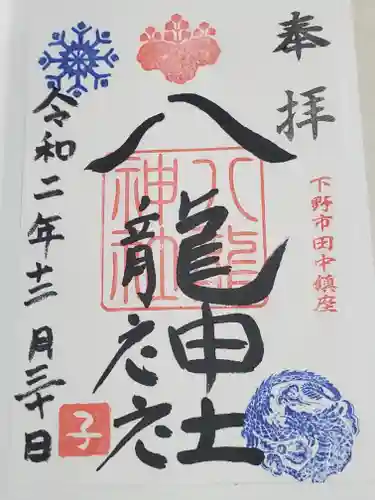 奉拝
下野市田中鎮座
八龍神社
八龍神社
令和二年十二月三十日
子